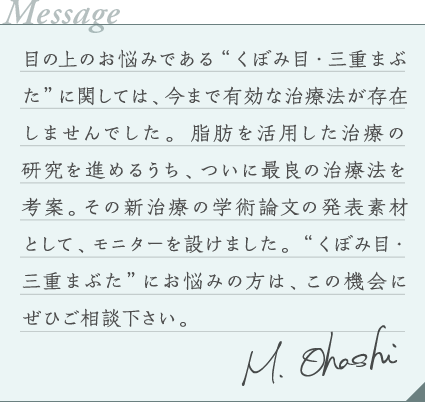 Message
目の上のお悩みである“くぼみ目・三重まぶ
た”に関しては、今まで有効な治療法が存在
しませんでした。脂肪を活用した治療の
研究を進めるうち、ついに最良の治療法を
考案。その新治療の学術論文の発表素材
として、モニターを設けました。“くぼみ目・
三重まぶた”にお悩みの方は、この機会に
ぜひご相談下さい。
M. Ohashi